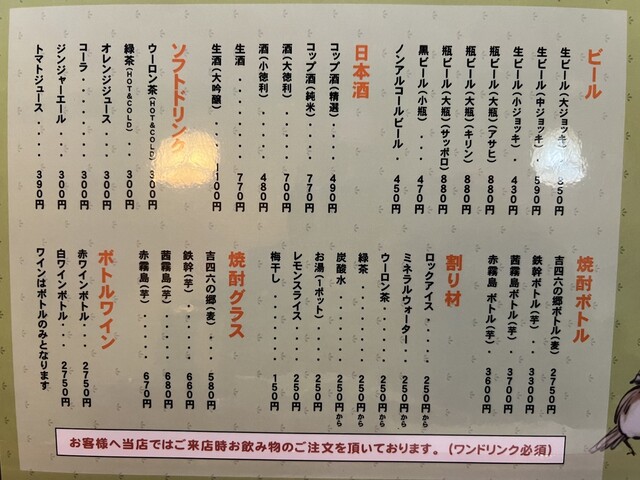 ビール
生ビール(大ジョッキ)・850円
生ビール(中ジョッキ)・590円
生ビール(小ジョッキ)・430円
瓶ビール(大瓶)(アサヒ)・880円
瓶ビール(大瓶)(キリン)・880円
瓶ビール(大瓶)(サッポロ)880円
黒ビール(小瓶)・・・470円
ノンアルコールビール・450円
日本酒
コップ酒(精選)・・・・490円
コップ酒(純米)・・・・770円
酒(大徳利)・・・・・700円
酒(小徳利)・・・・・480円
生酒・・・・・・・・770円
生酒(大吟醸)・・・・1100円
ソフトドリンク
ウーロン茶(HOT&COLD)300円
緑茶(HOT&COLD)・・・300円
オレンジジュース・・・300円
コーラ・・・・・・・300円
ジンジャーエール・・・300円
トマトジュース・・・・390円
焼酎ボトル
吉四六の郷ボトル(麦)2750円
鉄幹ボトル(芋)・・3300円
茜霧島ボトル(芋)・3700円
赤霧島 ボトル(芋)・3600円
割り材
ロックアイス・・・・・250円から
ミネラルウォーター・・250円から
ウーロン茶・・・・・250円から
緑茶・・・・・・・・250円から
炭酸水・・・・・・・250円から
お湯(1ポット)・・・・250円
レモンスライス・・・・250円
梅干し・・・・・・・150円
焼酎グラス
吉四六の郷(麦)・・・580円
鉄幹(芋)・・・・・・660円
茜霧島(芋)・・・・・680円
赤霧島(芋)・・・・・670円
ボトルワイン
赤ワインボトル・・・2750円
白ワインボトル・・・2750円
ワインはボトルのみとなります
お客様へ当店ではご来店時お飲み物のご注文を頂いております。(ワンドリンク必須)